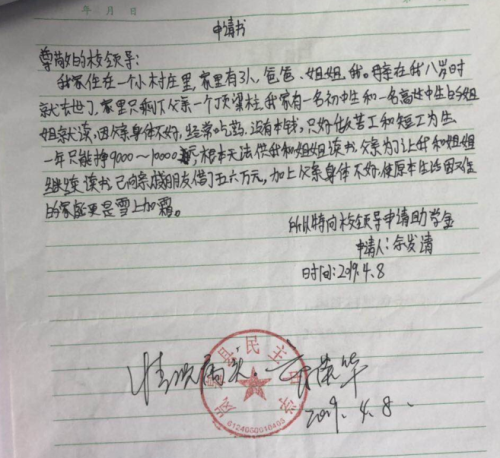 年 月 日
申请书
尊敬的校领导:
我家住在一个小村庄里,家里有3人,爸爸、姐姐、我。母亲在我八岁时
就去世了,家里只剩下父亲一个顶梁柱,我家有一名初中生和一名高中生由姐
姐就读,因父亲身体不好,经常吃药,没有本钱,只好做苦工和短工为生
一年只能挣9000~10000,根本无法供我和姐姐读书,父亲为了让我和姐姐
继续读书已向亲戚朋友借了五六万元,加上父亲身体不好,使原本生活困难
的家庭更是雪上加霜。
所以特向校领导申请助学金
申请人:余发清
时间:2019.4.8
情况属实
2019.4.8.
县民主